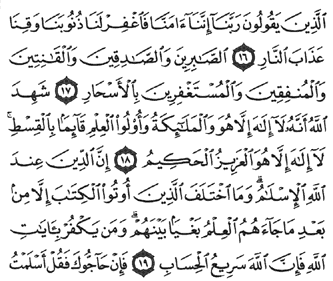 الَّذِينَ يَقُولُونَ رَبَّنَا إِنَّنَا ءَامَنَّا فَاغْفِرْ لَنَا ذُنُوبَنَا وَقِنَا
عَذَابَ النَّارِ ١٦ الصَّابِرِينَ وَالصَّادِقِينَ وَالْقَانِتِينَ
وَالْمُنفِقِينَ وَالْمُسْتَغْفِرِينَ بِالْأَسْحَارِ ١٧ شَهِدَ
اللَّهُ أَنَّهُ لَا إِلَٰهَ إِلَّا هُوَ وَالْمَلَائِكَةُ وَأُولُوا الْعِلْمِ قَائِمًا بِالْقِسْطِ ۚ
لَا إِلَٰهَ إِلَّا هُوَ الْعَزِيزُ الْحَكِيمُ ١٨ إِنَّ الدِّينَ عِندَ
اللَّهِ الْإِسْلَامُ ۗ وَمَا اخْتَلَفَ الَّذِينَ أُوتُوا الْكِتَابَ إِلَّا مِنْ
بَعْدِ مَا جَاءَهُمُ الْعِلْمُ بَغْيًا بَيْنَهُمْ ۗ وَمَن يَكْفُرْ بِـَٔايَٰتِ
اللَّهِ فَإِنَّ اللَّهَ سَرِيعُ الْحِسَابِ ١٩ فَإِنْ حَاجُّوكَ فَقُلْ أَسْلَمْتُ